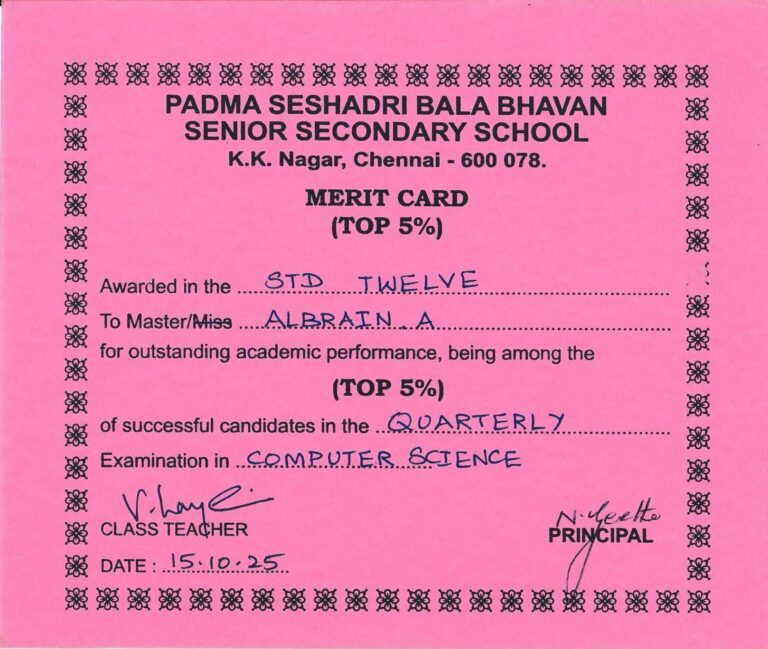 PADMA SESHADRI BALA BHAVAN
SENIOR SECONDARY SCHOOL
K.K. Nagar, Chennai - 600 078.
MERIT CARD
(TOP 5%)
Awarded in the STD TWELVE
To Master/Miss ALBRAIN. A
for outstanding academic performance, being among the
(TOP 5%)
of successful candidates in the QUARTERLY
Examination in COMPUTER SCIENCE
CLASS TEACHER
N. Geetha
PRINCIPAL
DATE : 15.10.25